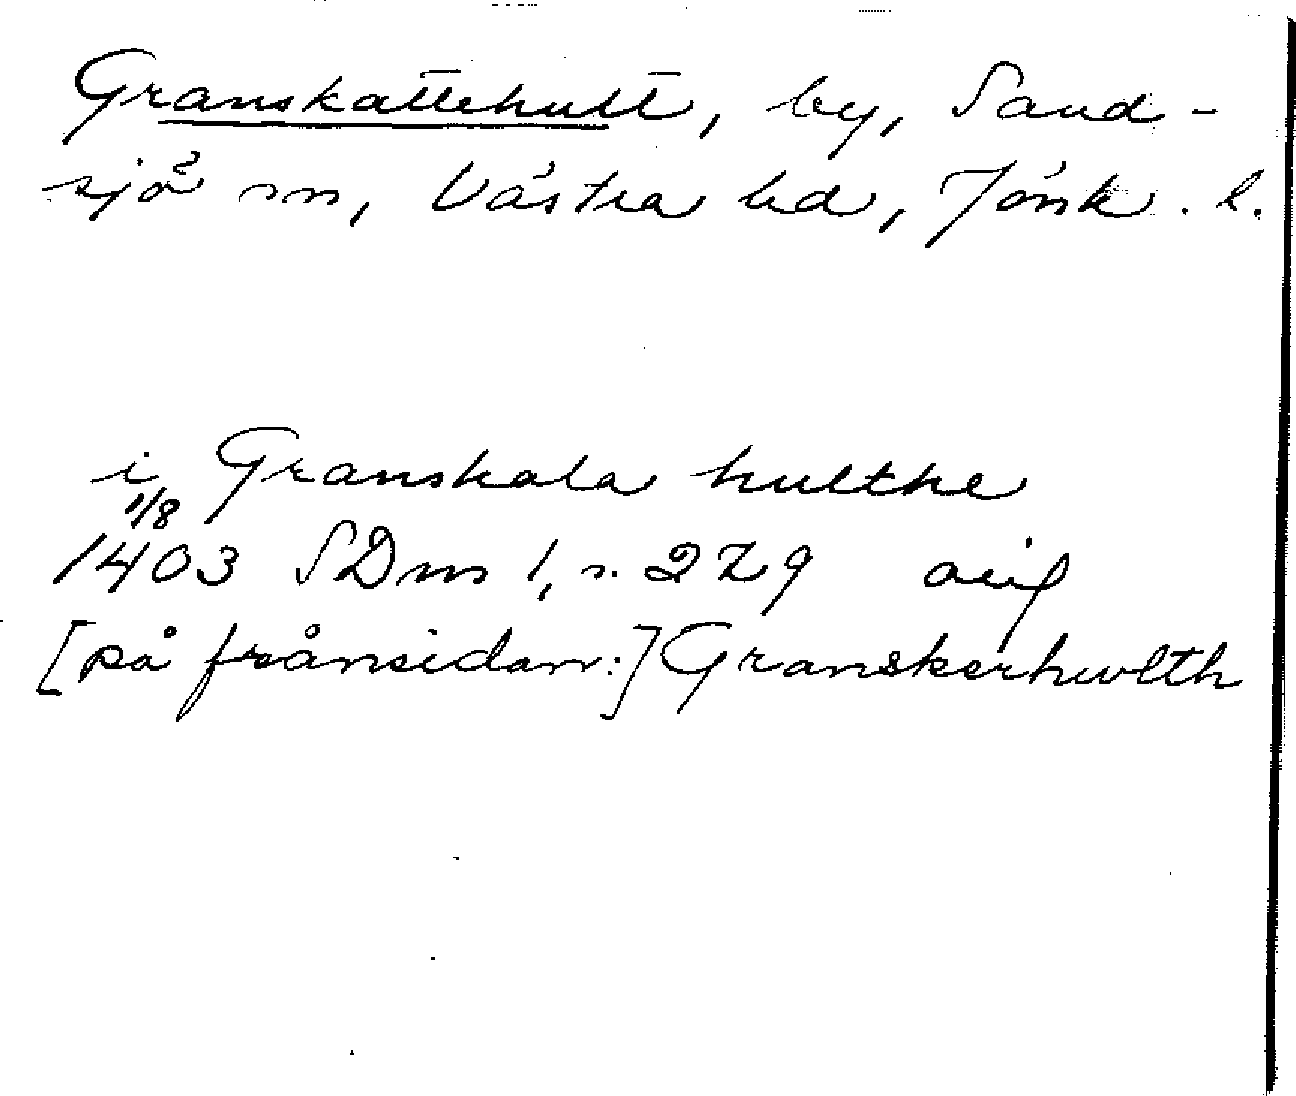 Granskattehult, by, Sand-
sjö sn, Västra hd, Jönk. l.
i Granskala hulthe
1/8
1403 SDns 1, s. 279 avig
[på frånsidan:] Granskerhwlth